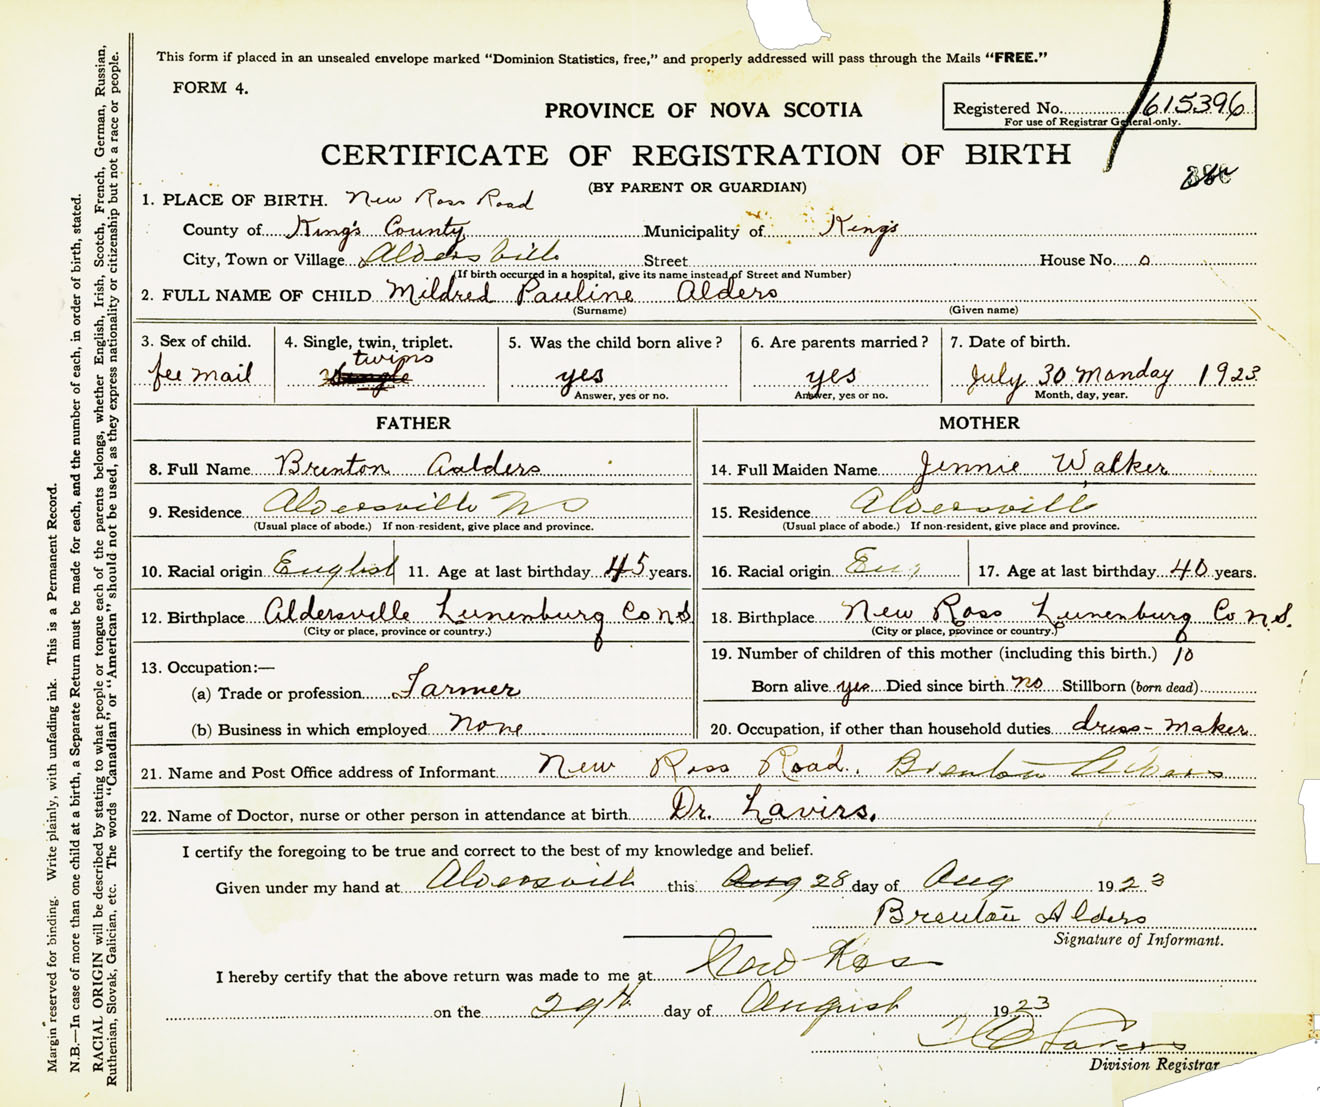 This form if placed in an unsealed envelope marked "Dominion Statistics, free," and properly addressed will pass through the Mails "FREE."
FORM 4.
PROVINCE OF NOVA SCOTIA
Registered No. 615396
For use of Registrar General only.
CERTIFICATE OF REGISTRATION OF BIRTH
(BY PARENT OR GUARDIAN)
1. PLACE OF BIRTH. New Ross Road
County of King's County Municipality of Kings
City, Town or Village Aldersville Street House No. 0
(If birth occurred in a hospital, give its name instead of Street and Number)
2. FULL NAME OF CHILD Mildred Pauline Alders
(Surname) (Given name)
3. Sex of child. 4. Single, twin, triplet. 5. Was the child born alive? 6. Are parents married? 7. Date of birth.
twins
fee mail single yes yes July 30 Monday 1923
Answer, yes or no. Answer, yes or no. Month, day, year.
FATHER MOTHER
8. Full Name Brenton Aalders 14. Full Maiden Name Jennie Walker
9. Residence Aldersville NS 15. Residence Aldersville
(Usual place of abode.) If non-resident, give place and province. (Usual place of abode.) If non-resident, give place and province.
10. Racial origin English 11. Age at last birthday 45 years. 16. Racial origin Eng 17. Age at last birthday 40 years.
12. Birthplace Aldersville Lunenburg Co N.S 18. Birthplace New Ross Lunenburg Co N.S.
(City or place, province or country.) (City or place, province or country.)
13. Occupation:— 19. Number of children of this mother (including this birth.) 10
(a) Trade or profession Farmer Born alive yes Died since birth no Stillborn (born dead)
(b) Business in which employed None 20. Occupation, if other than household duties dress-maker
21. Name and Post Office address of Informant New Ross Road. Brenton Alders
22. Name of Doctor, nurse or other person in attendance at birth Dr. Lavirs.
I certify the foregoing to be true and correct to the best of my knowledge and belief.
Given under my hand at Aldersville this Aug 28 day of Aug 1923
Brenton Alders
Signature of Informant.
I hereby certify that the above return was made to me at New Ross
on the 29th day of August 1923
Division Registrar
Margin reserved for binding. Write plainly, with unfading ink. This is a Permanent Record.
N.B.—In case of more than one child at a birth, a Separate Return must be made for each, and the number of each, in order of birth, stated.
RACIAL ORIGIN will be described by stating to what people or tongue each of the parents belongs, whether English, Irish, Scotch, French, German, Russian,
Ruthenian, Slovak, Galician, etc. The words "Canadian" or "American" should not be used, as they express nationality or citizenship but not a race or people.